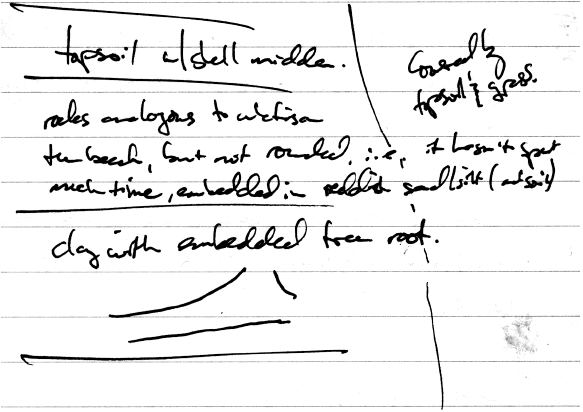 topsoil w/shell midden.
Covered by
topsoil & grass.
rocks analogous to what is on
the beach, but not rounded, i.e., it hasn't spent
much time, embedded in reddish sand/silt (
clay with embedded tree root.